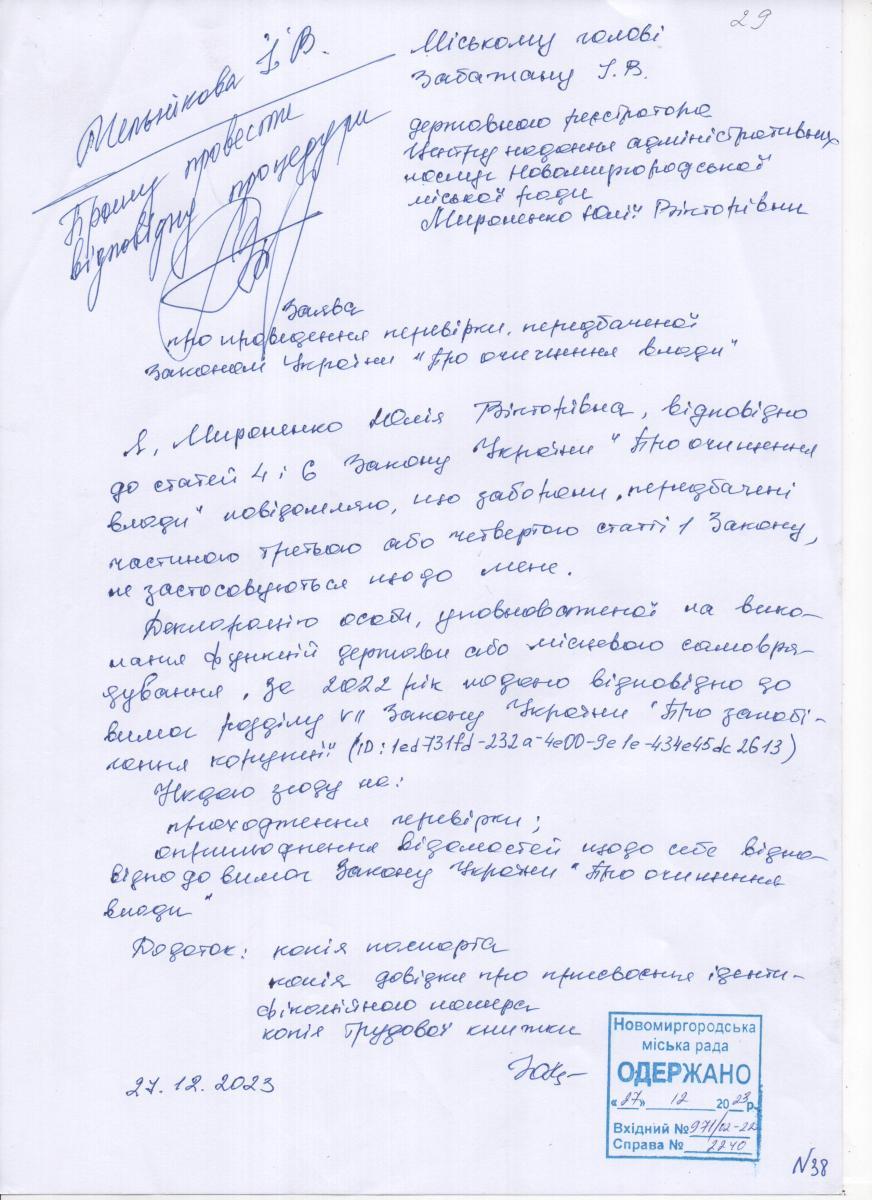 29
Мельнікова І. В.
Прошу провести
відповідну процедуру
Міському голові
Забажану І. В.
державного реєстратора
Центру надання адміністративних
послуг Новомиргородської
міської ради
Мироненко Юлії Вікторівни
Заява
про проведення перевірки, передбаченої
Законом України "Про очищення влади"
Я, Мироненко Юлія Вікторівна, відповідно
до статей 4 і 6 Закону України "Про очищення
влади" повідомляю, що заборони, передбачені
частиною третьою або четвертою статті 1 Закону,
не застосовуються щодо мене.
Декларацію особи, уповноваженої на вико-
нання функцій держави або місцевого самовря-
дування, за 2022 рік подано відповідно до
вимог розділу VII Закону України "Про запобі-
гання корупції" (ID: 1ed731fd-232a-4e00-9e1e-434e45dc2613)
Надаю згоду на:
проходження перевірки;
оприлюднення відомостей щодо себе відпо-
відно до вимог Закону України "Про очищення
влади"
Додаток: копія паспорта
копія довідки про присвоєння іденти-
фікаційного номера
копія трудової книжки
27.12.2023
Новомиргородська
міська рада
ОДЕРЖАНО
«27» 12 2023 р.
Вхідний № 971/02-22
Справа № 2240
N38